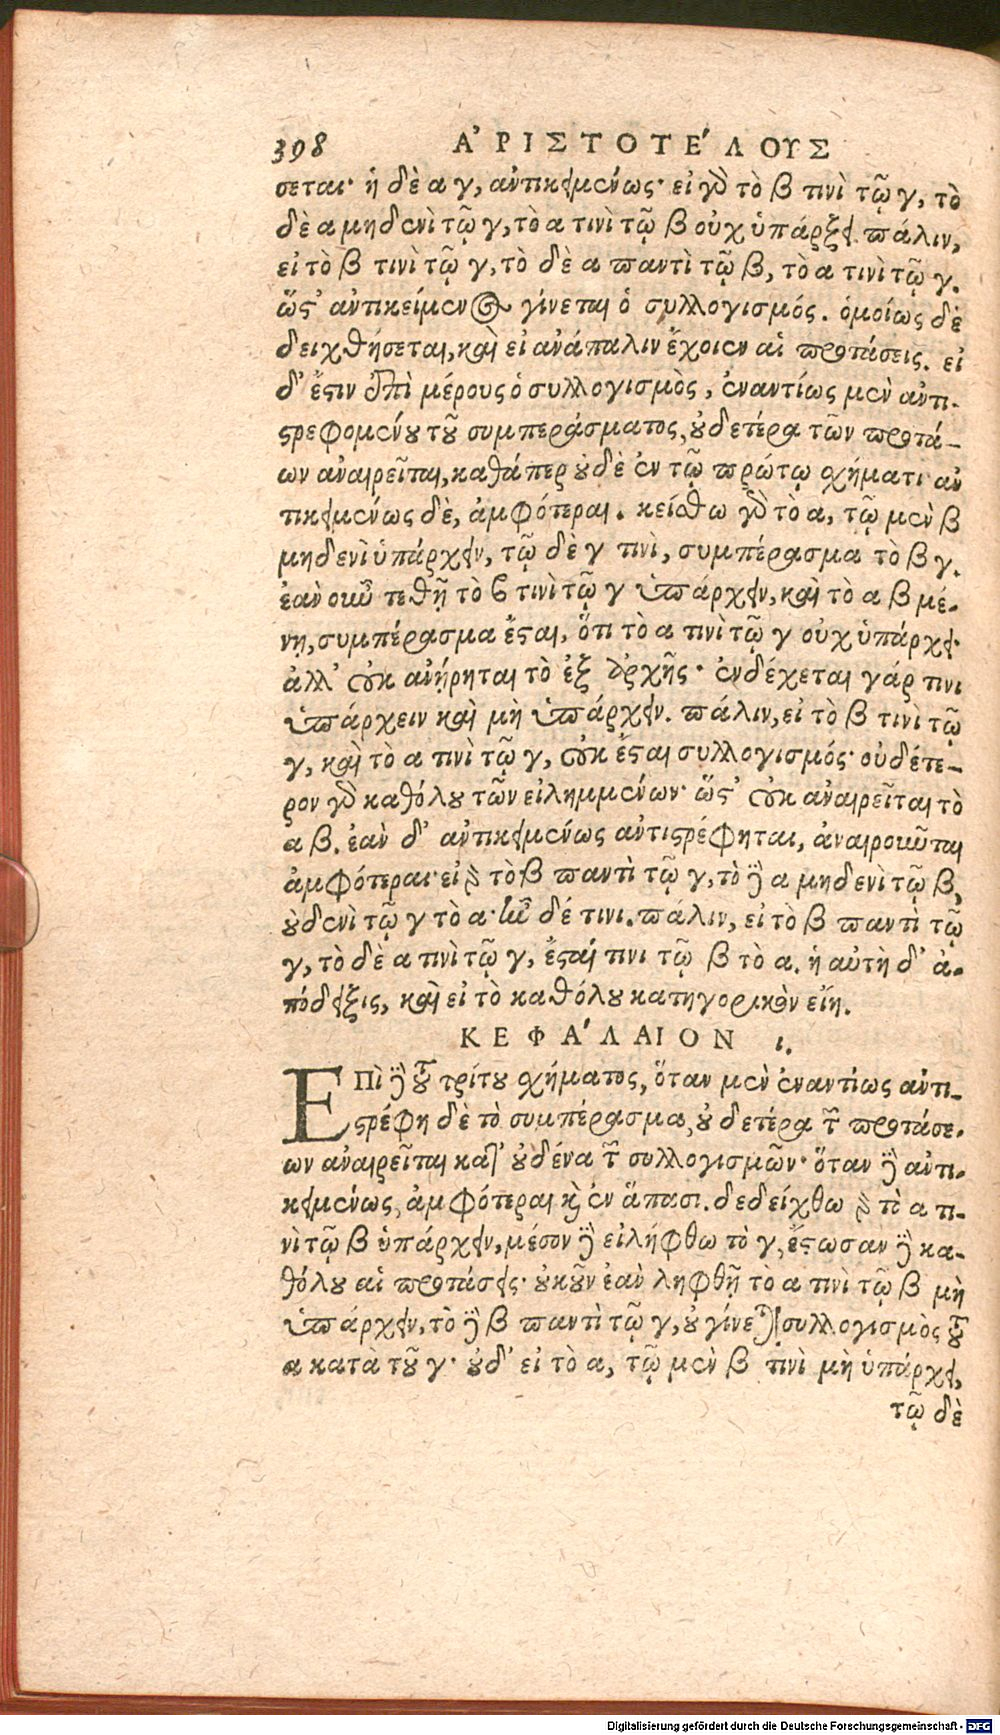 398 ἈΡΙΣΤΟΤΈΛΟΥΣ
σεται· ἡ δὲ α γ, ἀντικειμένως· εἰ γὸ τὸ β τινὶ τῷ γ, τὸ
δὲ α μηδενὶ τῷ γ, τὸ α τινὶ τῷ β οὐχ ὑπάρξει. πάλιν,
εἰ τὸ β τινὶ τῷ γ, τὸ δὲ α παντὶ τῷ β, τὸ α τινὶ τῷ γ.
ὥςτ' ἀντικείμενος γίνεται ὁ συλλογισμός. ὁμοίως δὲ
δειχθήσεται, καὶ εἰ ἀνάπαλιν ἔχοιεν αἱ προτάσεις. εἰ
δ' ἔστιν ἐπὶ μέρους ὁ συλλογισμὸς, ἐναντίως μὲν ἀντι-
στρεφομένου τοῦ συμπεράσματος, οὐδετέρα τῶν προτά-
ων ἀναιρεῖται, καθάπερ οὐδὲ ἐν τῷ πρώτῳ σχήματι· ἀν
τικειμένως δὲ, ἀμφότεραι. κείσθω γὸ τὸ α, τῷ μὲν β
μηδενὶ ὑπάρχειν, τῷ δὲ γ τινὶ, συμπέρασμα τὸ β γ.
ἐὰν οὖν τεθῇ τὸ β τινὶ τῷ γ ὑπάρχειν, καὶ τὸ α β μέ-
νῃ, συμπέρασμα ἔσται, ὅτι τὸ α τινὶ τῷ γ οὐχ ὑπάρχει·
ἀλλ' οὐκ ἀνῄρηται τὸ ἐξ ἀρχῆς· ἐνδέχεται γάρ τινι
ὑπάρχειν καὶ μὴ ὑπάρχειν. πάλιν, εἰ τὸ β τινὶ τῷ
γ, καὶ τὸ α τινὶ τῷ γ, οὐκ ἔσται συλλογισμός· οὐδέτε-
ρον γὸ καθόλου τῶν εἰλημμένων· ὥςτ' οὐκ ἀναιρεῖται τὸ
α β. ἐὰν δ' ἀντικειμένως ἀντιστρέφηται, ἀναιροῦνται
ἀμφότεραι· εἰ γὸ τὸ β παντὶ τῷ γ, τὸ δὲ α μηδενὶ τῷ β,
οὐδενὶ τῷ γ τὸ α· ἦν δέ τινι. πάλιν, εἰ τὸ β παντὶ τῷ
γ, τὸ δὲ α τινὶ τῷ γ, ἔσται τινι τῷ β τὸ α. ἡ αὐτὴ δ' ἀ-
πόδειξις, καὶ εἰ τὸ καθόλου κατηγορικὸν εἴη.
ΚΕΦΆΛΑΙΟΝ ι.
ΕΠὶ δὲ τοῦ τρίτου σχήματος, ὅταν μὲν ἐναντίως ἀντι-
στρέφη δὲ τὸ συμπέρασμα, οὐδετέρα τῶν προτάσε-
ων ἀναιρεῖται κατ' οὐδένα τῶν συλλογισμῶν· ὅταν δὲ ἀντι-
κειμένως, ἀμφότεραι καὶ ἐν ἅπασι. δεδείχθω γὸ τὸ α τι-
νὶ τῷ β ὑπάρχειν, μέσον δὲ εἰλήφθω τὸ γ, ἔστωσαν δὲ κα-
θόλου αἱ προτάσεις· οὐκοῦν ἐὰν ληφθῇ τὸ α τινὶ τῷ β μὴ
ὑπάρχειν, τὸ δὲ β παντὶ τῷ γ, οὐ γίνεται συλλογισμὸς τοῦ
α κατὰ τοῦ γ· οὐδ' εἰ τὸ α, τῷ μὲν β τινὶ μὴ ὑπάρχει,
τῷ δὲ
Digitalisierung gefördert durch die Deutsche Forschungsgemeinschaft - DFG